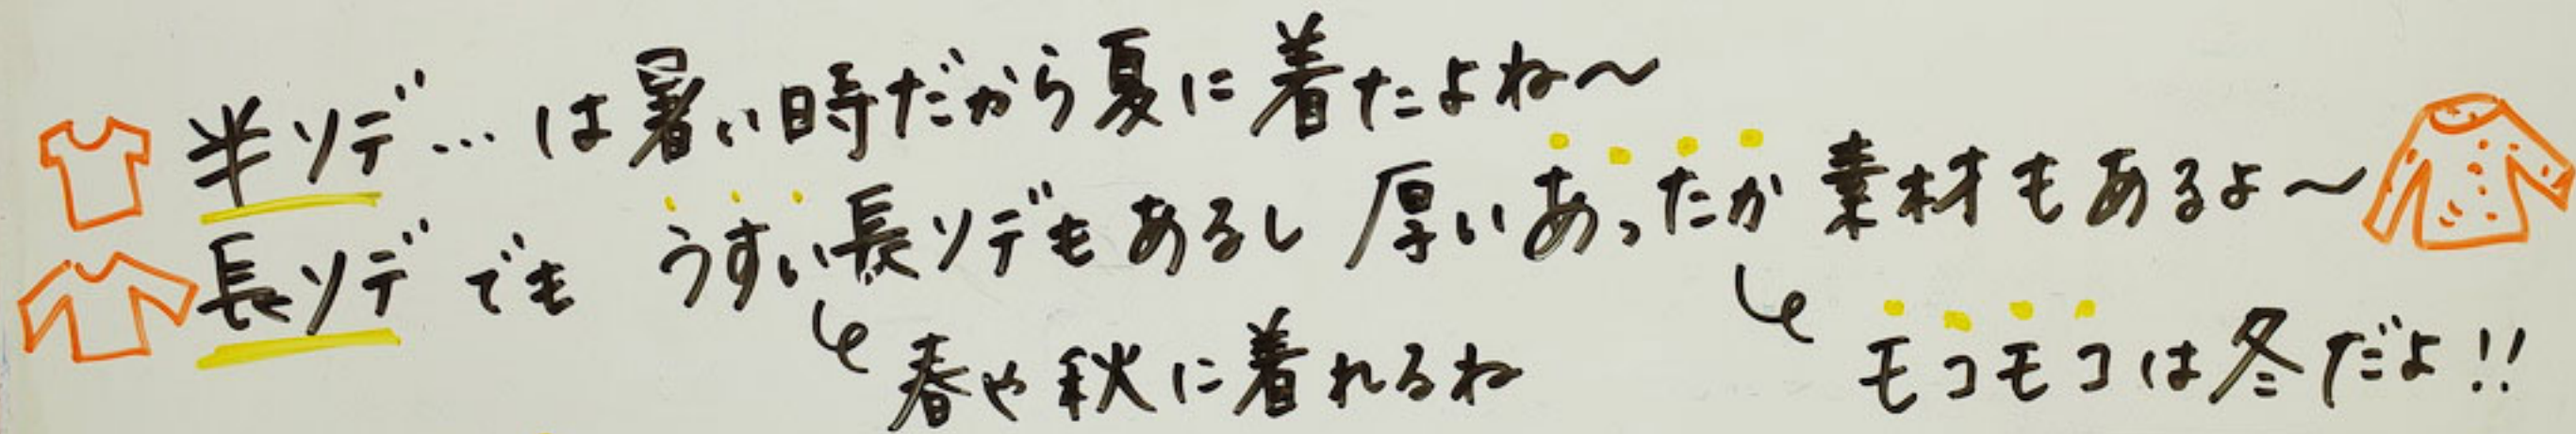 半ソデ…は暑い時だから夏に着たよね〜
長ソデでも うすい長ソデもあるし 厚いあったか素材もあるよ〜
春や秋に着れるね
モコモコは冬だよ!!